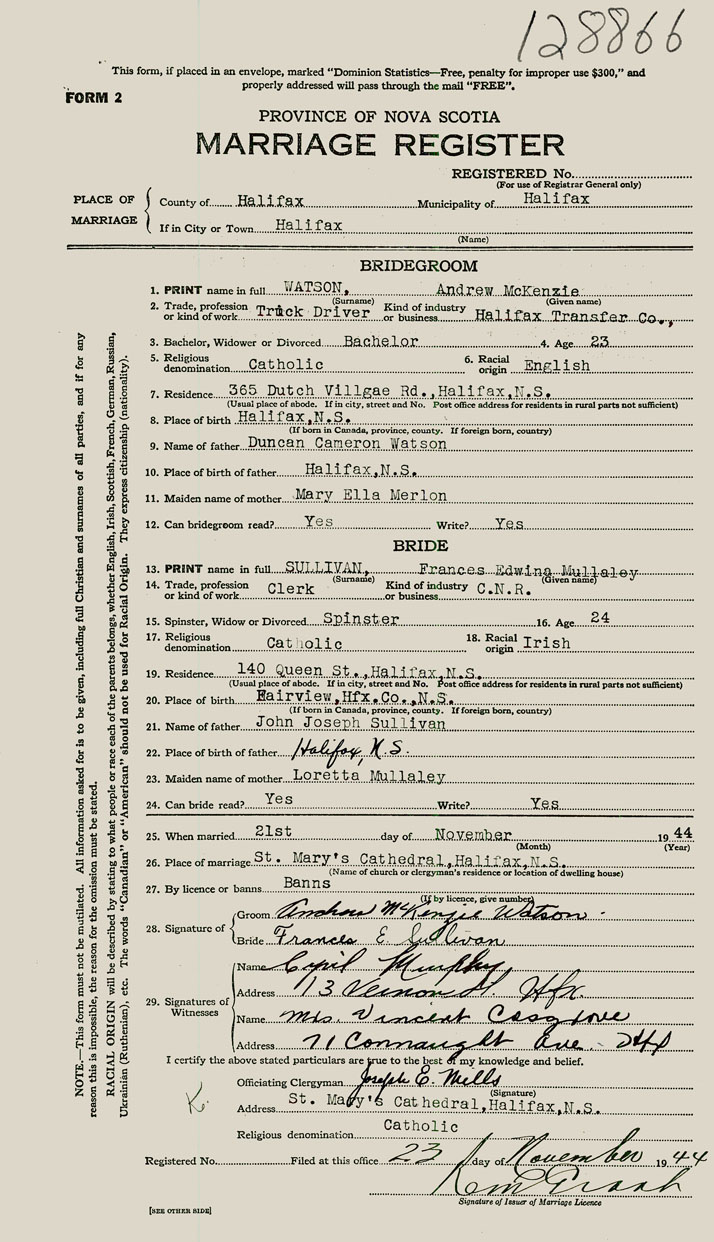 128866
This form, if placed in an envelope, marked "Dominion Statistics—Free, penalty for improper use $300," and
properly addressed will pass through the mail "FREE".
FORM 2
PROVINCE OF NOVA SCOTIA
MARRIAGE REGISTER
REGISTERED No.
(For use of Registrar General only)
PLACE OF MARRIAGE
County of Halifax Municipality of Halifax
If in City or Town Halifax
(Name)
BRIDEGROOM
1. PRINT name in full WATSON, Andrew McKenzie
(Surname) (Given name)
2. Trade, profession or kind of work Truck Driver Kind of industry or business Halifax Transfer Co.,
3. Bachelor, Widower or Divorced Bachelor 4. Age 23
5. Religious denomination Catholic 6. Racial origin English
7. Residence 365 Dutch Villgae Rd.,Halifax,N.S.
(Usual place of abode. If in city, street and No. Post office address for residents in rural parts not sufficient)
8. Place of birth Halifax,N.S.
(If born in Canada, province, county. If foreign born, country)
9. Name of father Duncan Cameron Watson
10. Place of birth of father Halifax,N.S.
11. Maiden name of mother Mary Ella Merlon
12. Can bridegroom read? Yes Write? Yes
BRIDE
13. PRINT name in full SULLIVAN, Frances Edwina Mullaley
(Surname) (Given name)
14. Trade, profession or kind of work Clerk Kind of industry or business C.N.R.
15. Spinster, Widow or Divorced Spinster 16. Age 24
17. Religious denomination Catholic 18. Racial origin Irish
19. Residence 140 Queen St.,Halifax,N.S.
(Usual place of abode. If in city, street and No. Post office address for residents in rural parts not sufficient)
20. Place of birth Fairview,Hfx.Co.,N.S.
(If born in Canada, province, county. If foreign born, country)
21. Name of father John Joseph Sullivan
22. Place of birth of father Halifax, N.S.
23. Maiden name of mother Loretta Mullaley
24. Can bride read? Yes Write? Yes
25. When married 21st day of November 19 44
(Month) (Year)
26. Place of marriage St. Mary's Cathedral,Halifax,N.S.
(Name of church or clergyman's residence or location of dwelling house)
27. By licence or banns Banns
(If by licence, give number)
28. Signature of
Groom Andrew McKenzie Watson
Bride Frances E Sullivan
29. Signatures of Witnesses
Name Cyril Murphy
Address 13 Vernon St. Hfx.
Name Mrs. Vincent Cosgrove
Address 71 Connaught Ave. Hfx
I certify the above stated particulars are true to the best of my knowledge and belief.
Officiating Clergyman Joseph E. Mills
(Signature)
K.
Address St. Mary's Cathedral,Halifax,N.S.
Religious denomination Catholic
Registered No. Filed at this office 23 day of November 19 44
Signature of Issuer of Marriage Licence
[SEE OTHER SIDE]
NOTE.—This form must not be mutilated. All information asked for is to be given, including full Christian and surnames of all parties, and if for any
reason this is impossible, the reason for the omission must be stated.
RACIAL ORIGIN will be described by stating to what people or race each of the parents belongs, whether English, Irish, Scottish, French, German, Russian,
Ukrainian (Ruthenian), etc. The words "Canadian" or "American" should not be used for Racial Origin. They express citizenship (nationality).